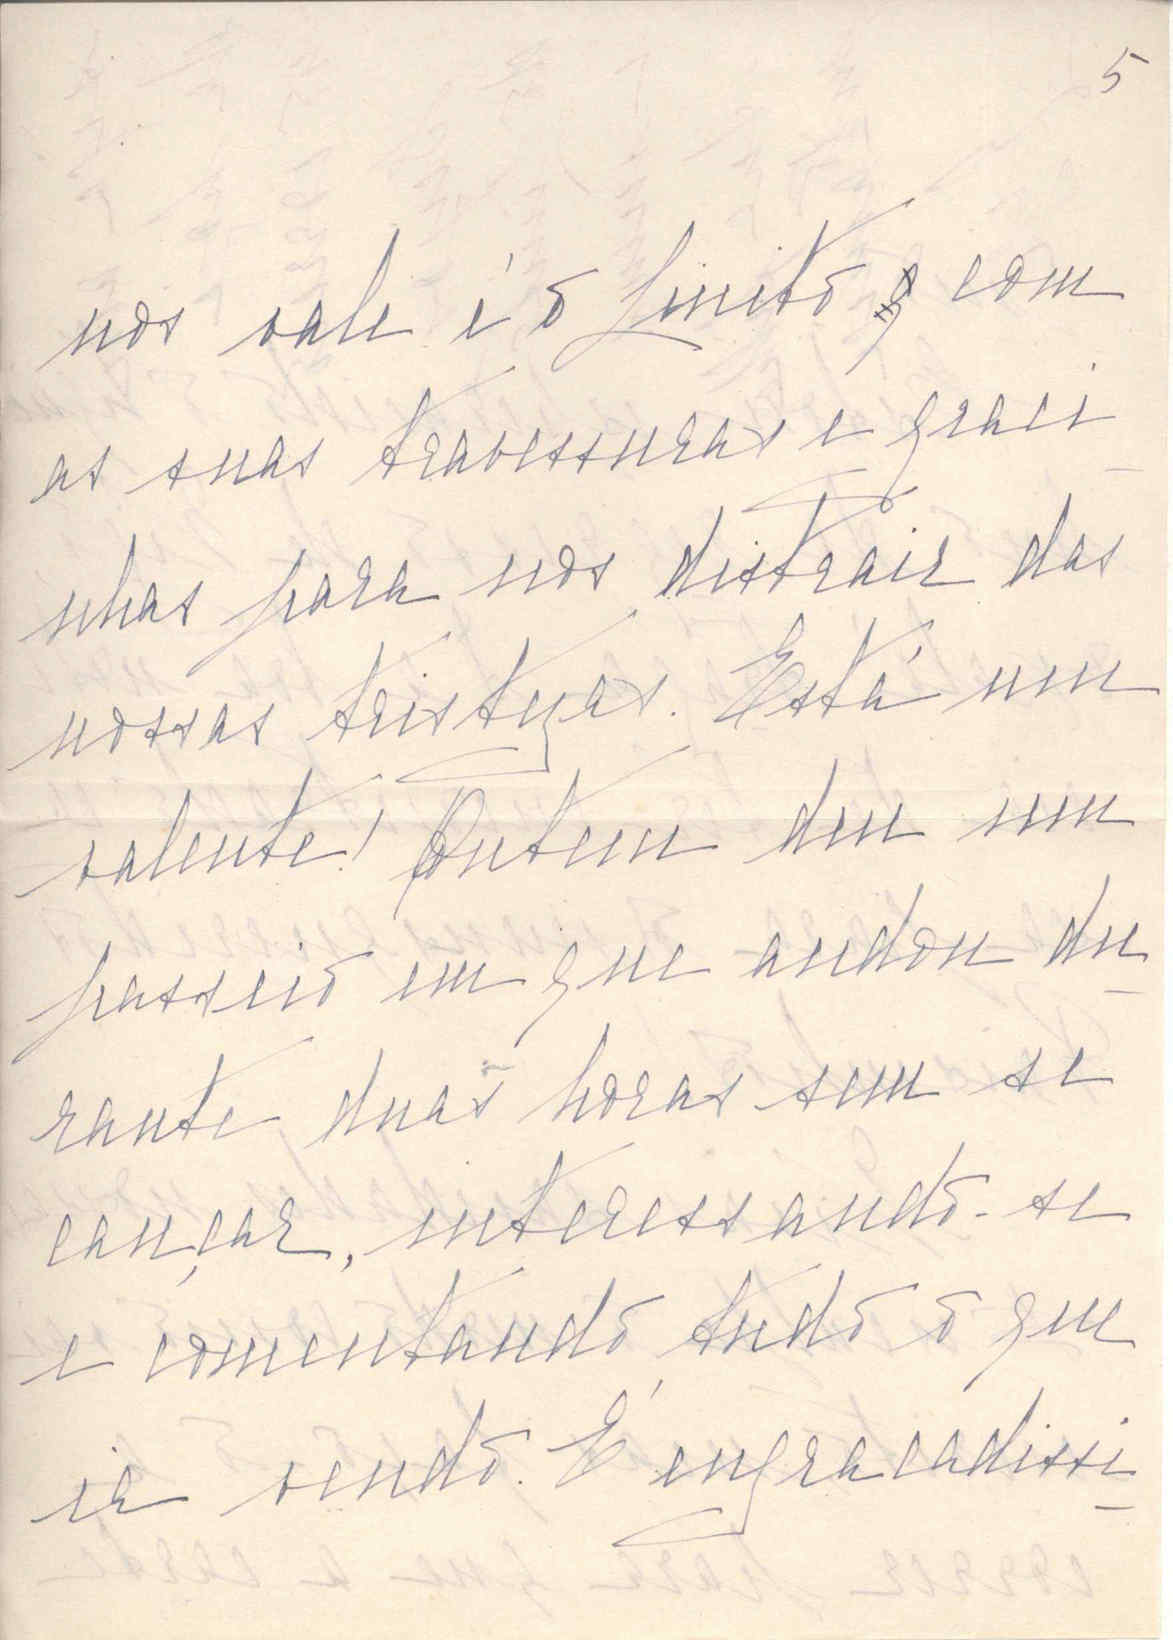 5
nos vale é o Linito com
as suas travessuras e graci-
nhas para nos distrair das
nossas tristezas. Está um
valente! Ontem deu um
passeio em que andou du-
rante duas horas sem se
cançar, interessando-se
e comentando tudo o que
ia vendo. É engraçadissi-